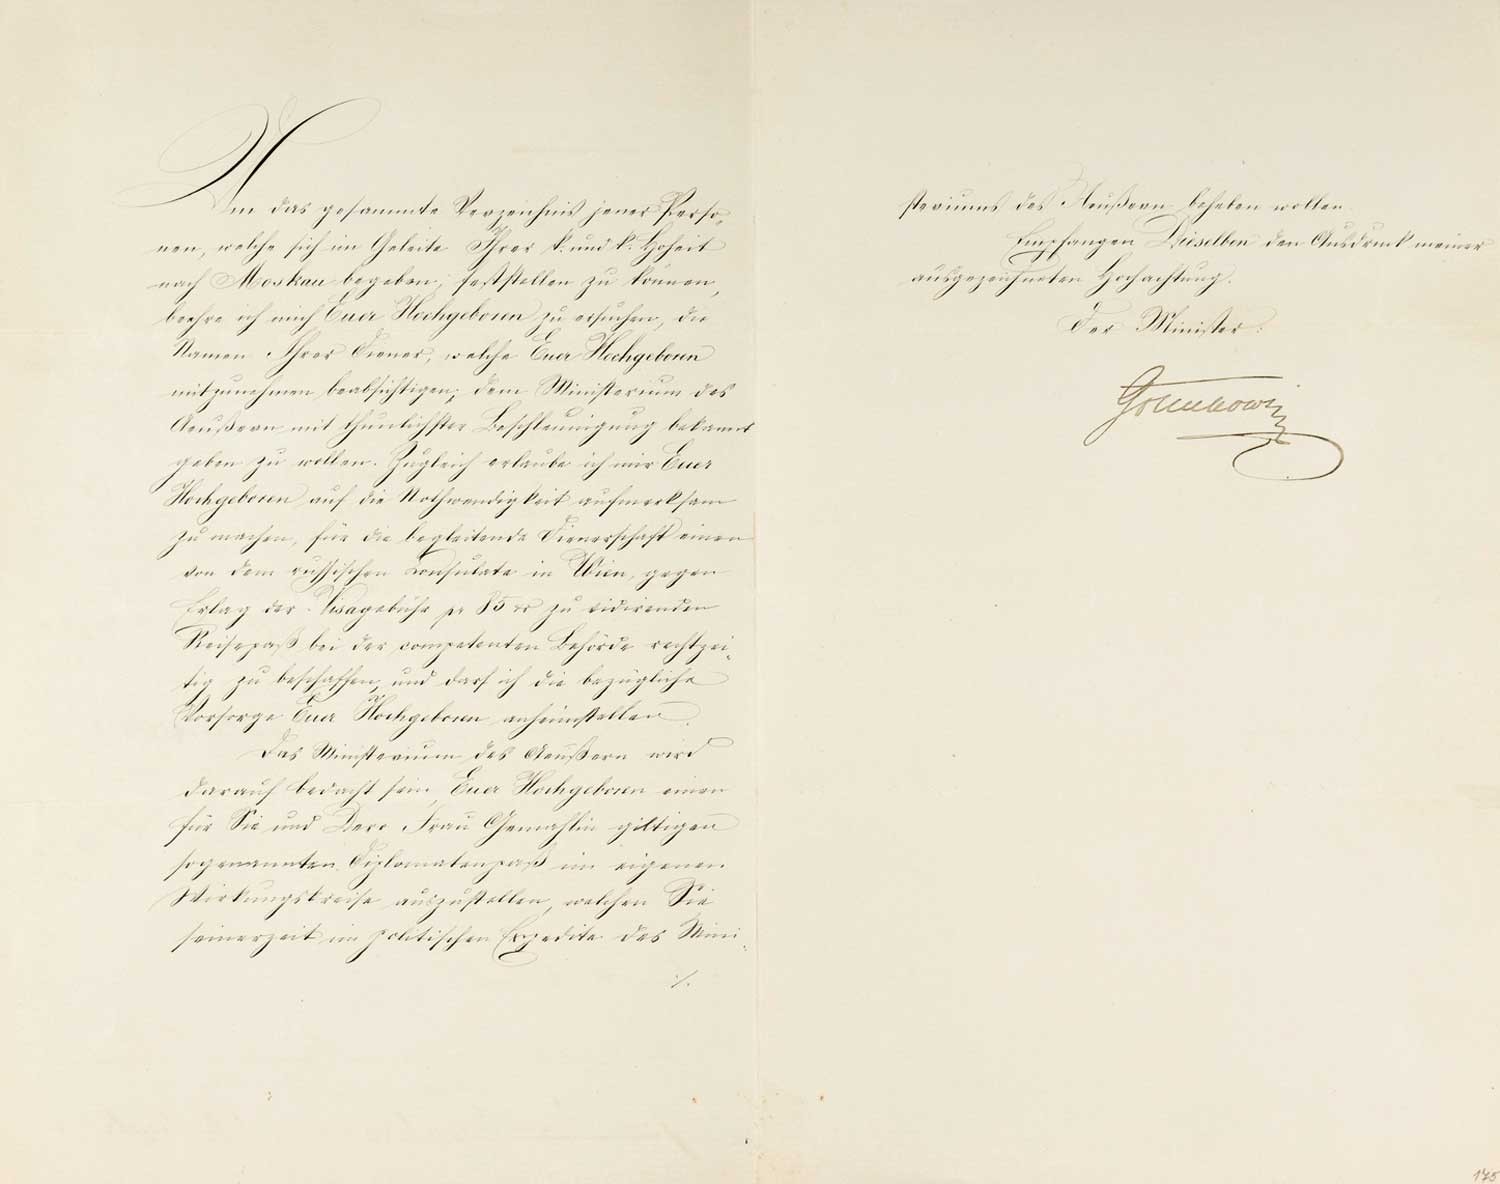 Um das gesammte Verzeichnis jener Perso-
nen, welche sich im Geleite Ihrer k. und k. Hoheit
nach Moskau begeben, feststellen zu können,
beehre ich mich Euer Hochgeboren zu ersuchen, die
Namen Ihrer Diener, welche Euer Hochgeboren
mitzunehmen beabsichtigen, dem Ministerium des
Aeußern mit thunlichster Beschleunigung bekannt
geben zu wollen. Zugleich erlaube ich mir Euer
Hochgeboren auf die Nothwendigkeit aufmerksam
zu machen, für die begleitende Dienerschaft einen
von dem russischen Consulate in Wien, gegen
Erlag der Visagebühr pr 85 xr zu vidirenden
Reisepaß bei der competenten Behörde rechtzei-
tig zu beschaffen, und darf ich die bezügliche
Vorsorge Euer Hochgeboren anheimstellen.
Das Ministerium des Aeußern wird
darauf bedacht sein, Euer Hochgeboren einen
für Sie und Dero Frau Gemahlin giltigen
sogenannten Diplomatenpaß im eigenen
Wirkungskreise auszustellen, welchen Sie
seinerzeit im politischen Expedite des Mini-
./.
steriums des Aeußern beheben wollen.
Empfangen Dieselben den Ausdruck meiner
ausgezeichneten Hochachtung.
Der Minister:
Goluchowski
175